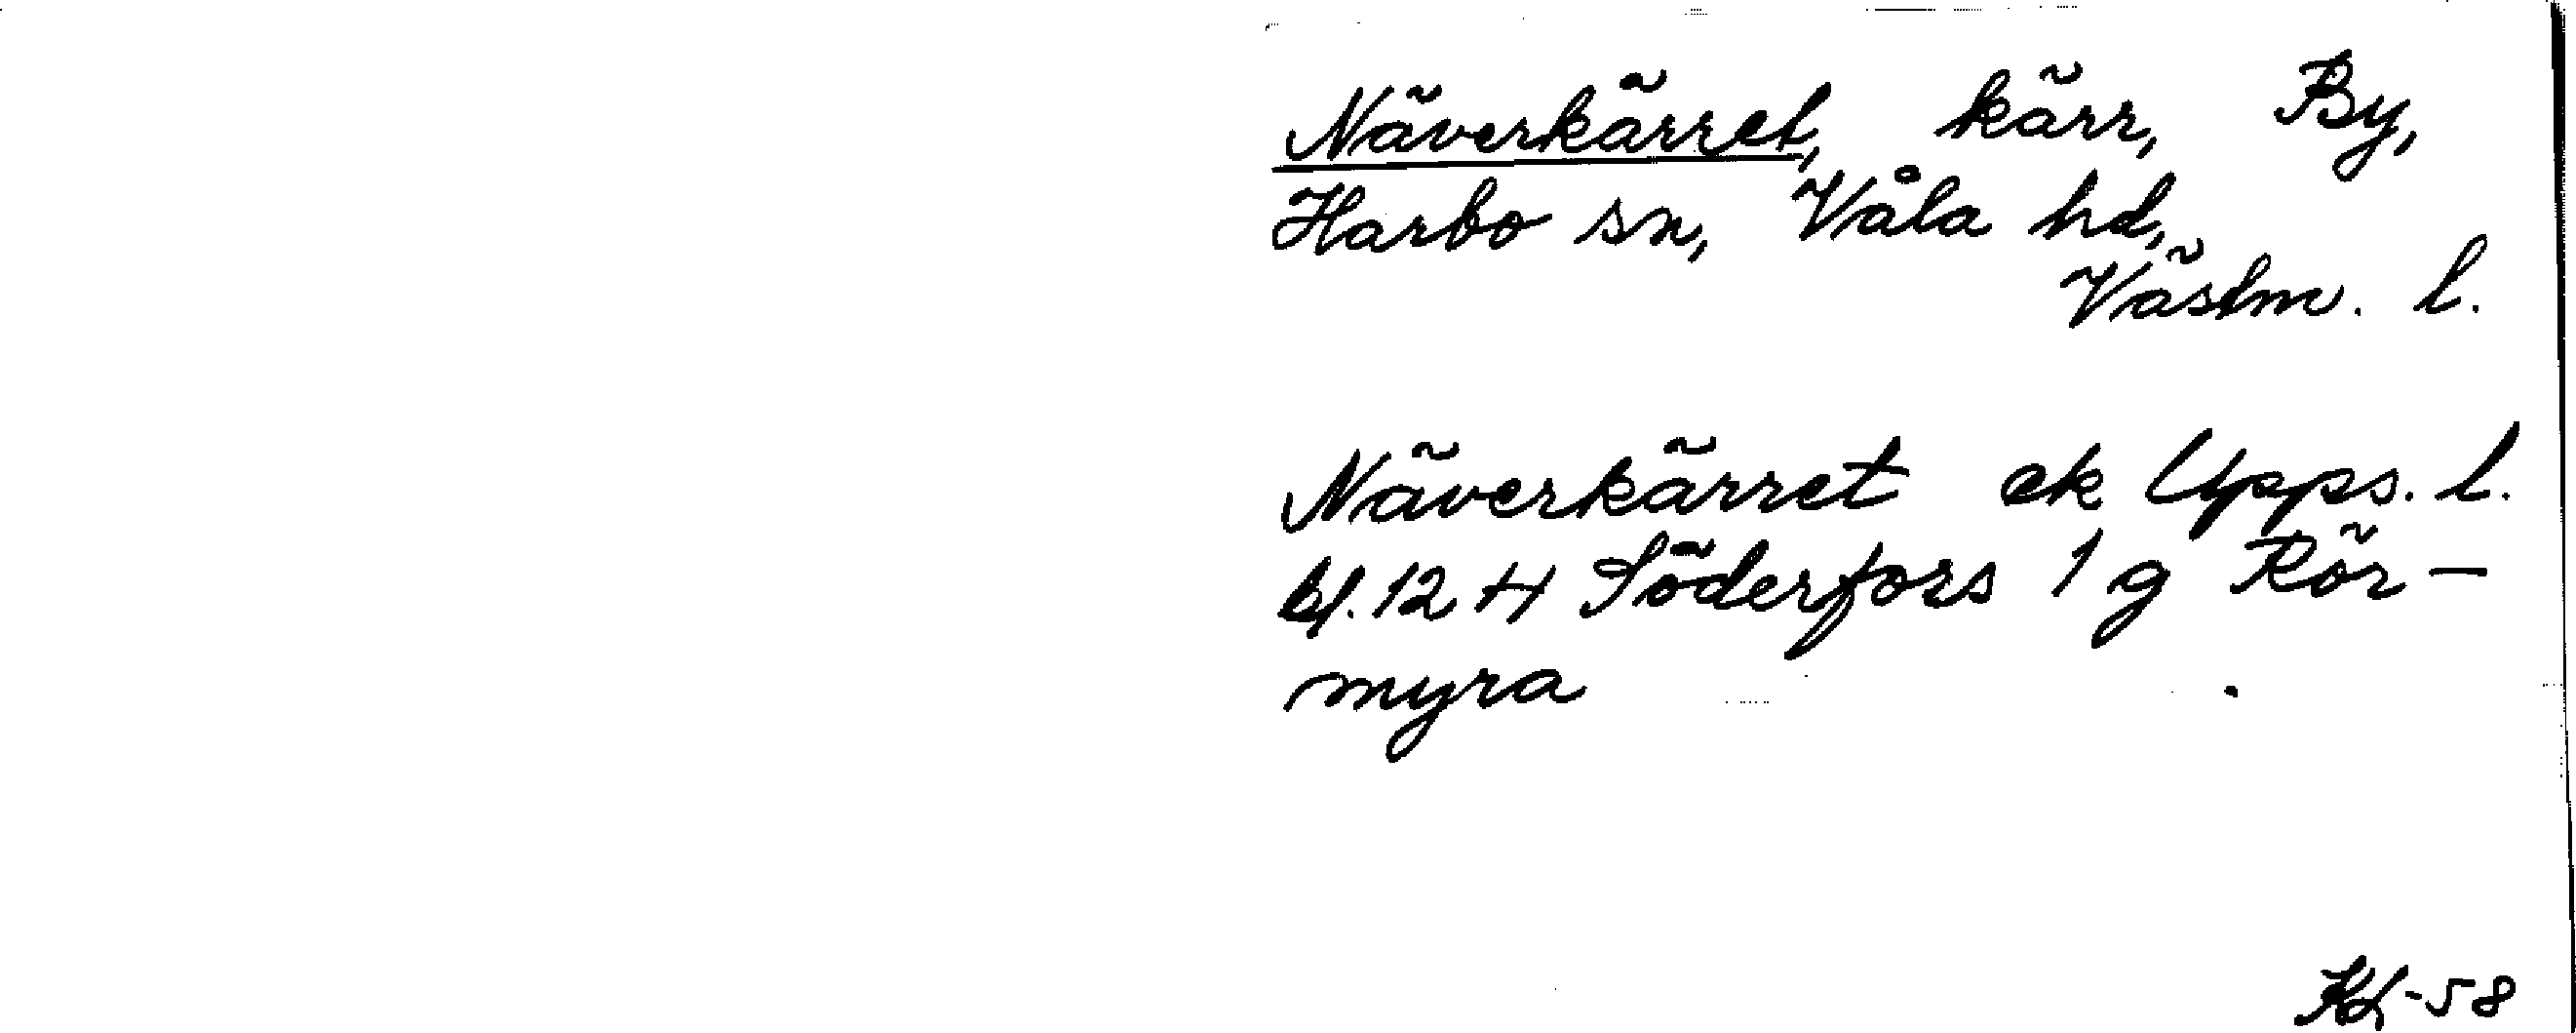 Näverkärret, kärr, By,
Harbo sn, Våla hd,
Västm. l.
Näverkärret ek Upps. l.
bl. 12 H Söderfors 1 g Rör-
myra
-58